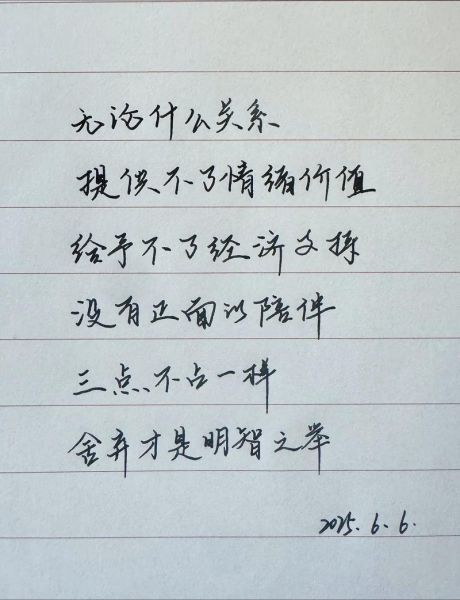 无论什么关系
提供不了情绪价值
给予不了经济支撑
没有正面以陪伴
三点不占一样
舍弃才是明智之举
2025.6.6.